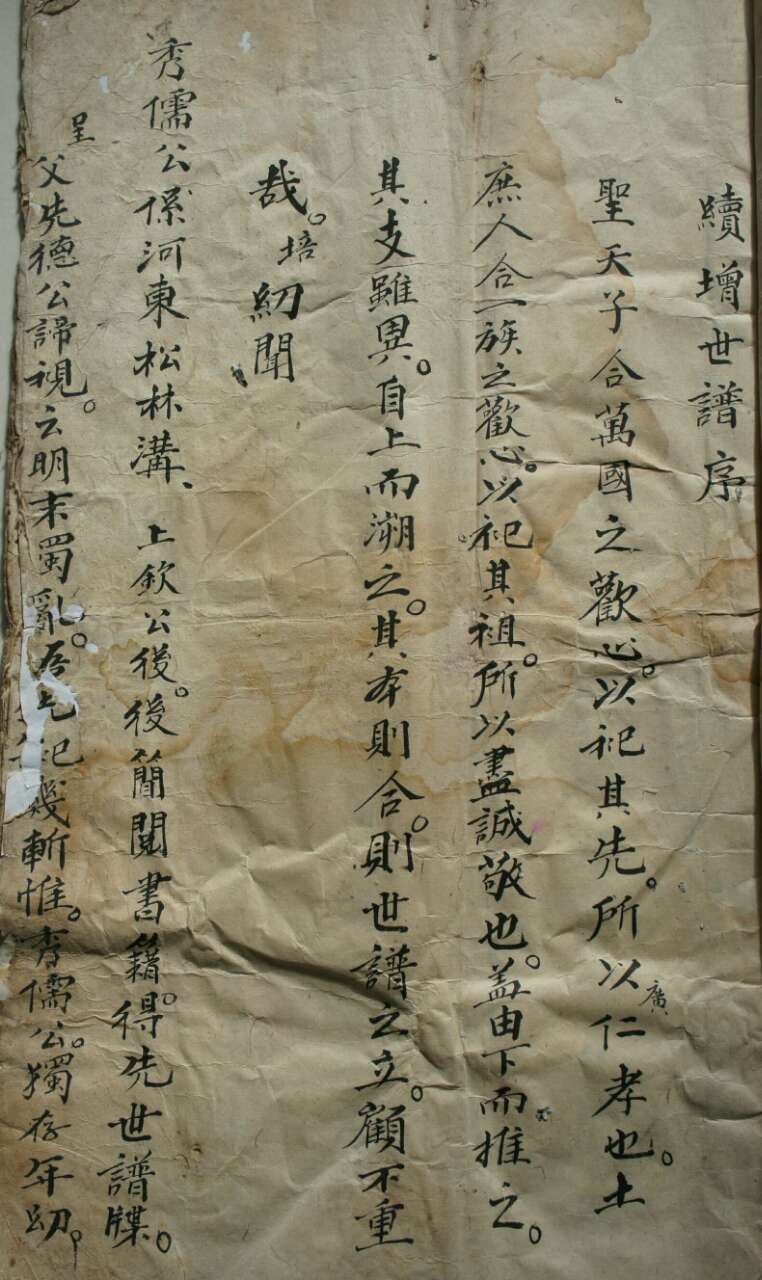 續增世譜序
聖天子合萬國之歡心。以祀其先。所以廣仁孝也。土
庶人合一族之歡心。以祀其祖。所以盡誠敬也。盖由下而推之。
其支雖異。自上而溯之。其本則合。則世譜之立。顧不重
哉。培幼聞
秀儒公係河東松林溝、上欽公後。後簡閱書籍。得先世譜牒。
呈父先德公諦視。云明末蜀亂。吾先祀幾斬惟。秀儒公。獨存年幼。